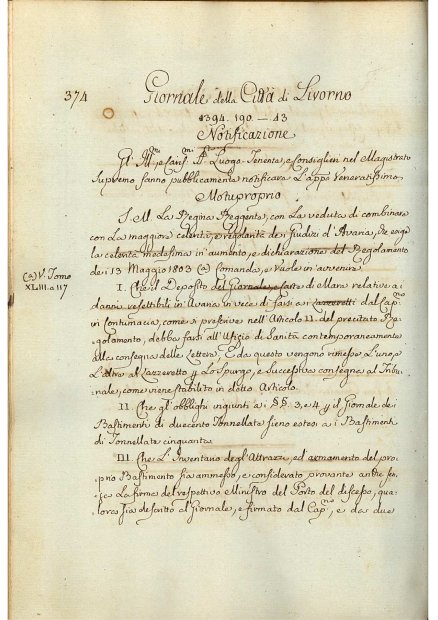 374
Giornale della Città di Livorno
1394. 190. — 13
Notificazione
Gl' Ill.mi, e Clar.mi SS. Luogo Tenente, e Consiglieri nel Magistrato
Supremo fanno pubblicamente notificare L'app.o Veneratissimo
Motuproprio
S. M. La Regina Reggente, con La veduta di combinare
con La maggiore celerità, e regolarità de i Giudizi d'Avaria,
la celerità medesima in aumento, e dichiarazione del Regolamento
de i 13 Maggio 1803 (a) Comanda, e Vuole in avvenire
(a) V. Tomo
XLIII. a 117
I. Che il Deposito del Giornale, e Carte di Mare relative ai
danni reffettibili in Avaria in vece di farsi a i Lazzeretti dal Cap.no
in Contumacia, come si prescrive nell'Articolo II. del precitato Re-
golamento, debba farsi all'Ufizio di Sanità contemporaneamente
alla consegna delle Lettere. E da questo vengono rimesse L'uno, e
L'altre al Lazzeretto p. Lo Spurgo, e successiva consegna al Tribu-
nale, come viene stabilito in detto Articolo.
II. Che gli obblighi ingiunti a i §§. 3, e 4 p. il Giornale de i
Bastimenti di duecento Tonnellate sieno estesi a i Bastimenti
di Tonnellate cinquanta.
III. Che L'Inventario degl'Attrazzi, ed armamento del pro-
prio Bastimento sia ammesso, e considerato provante anche sen-
za La firma del respettivo Ministro del Porto del discesso, qua-
lora sia descritto al Giornale, e firmato dal Cap.no, e da due